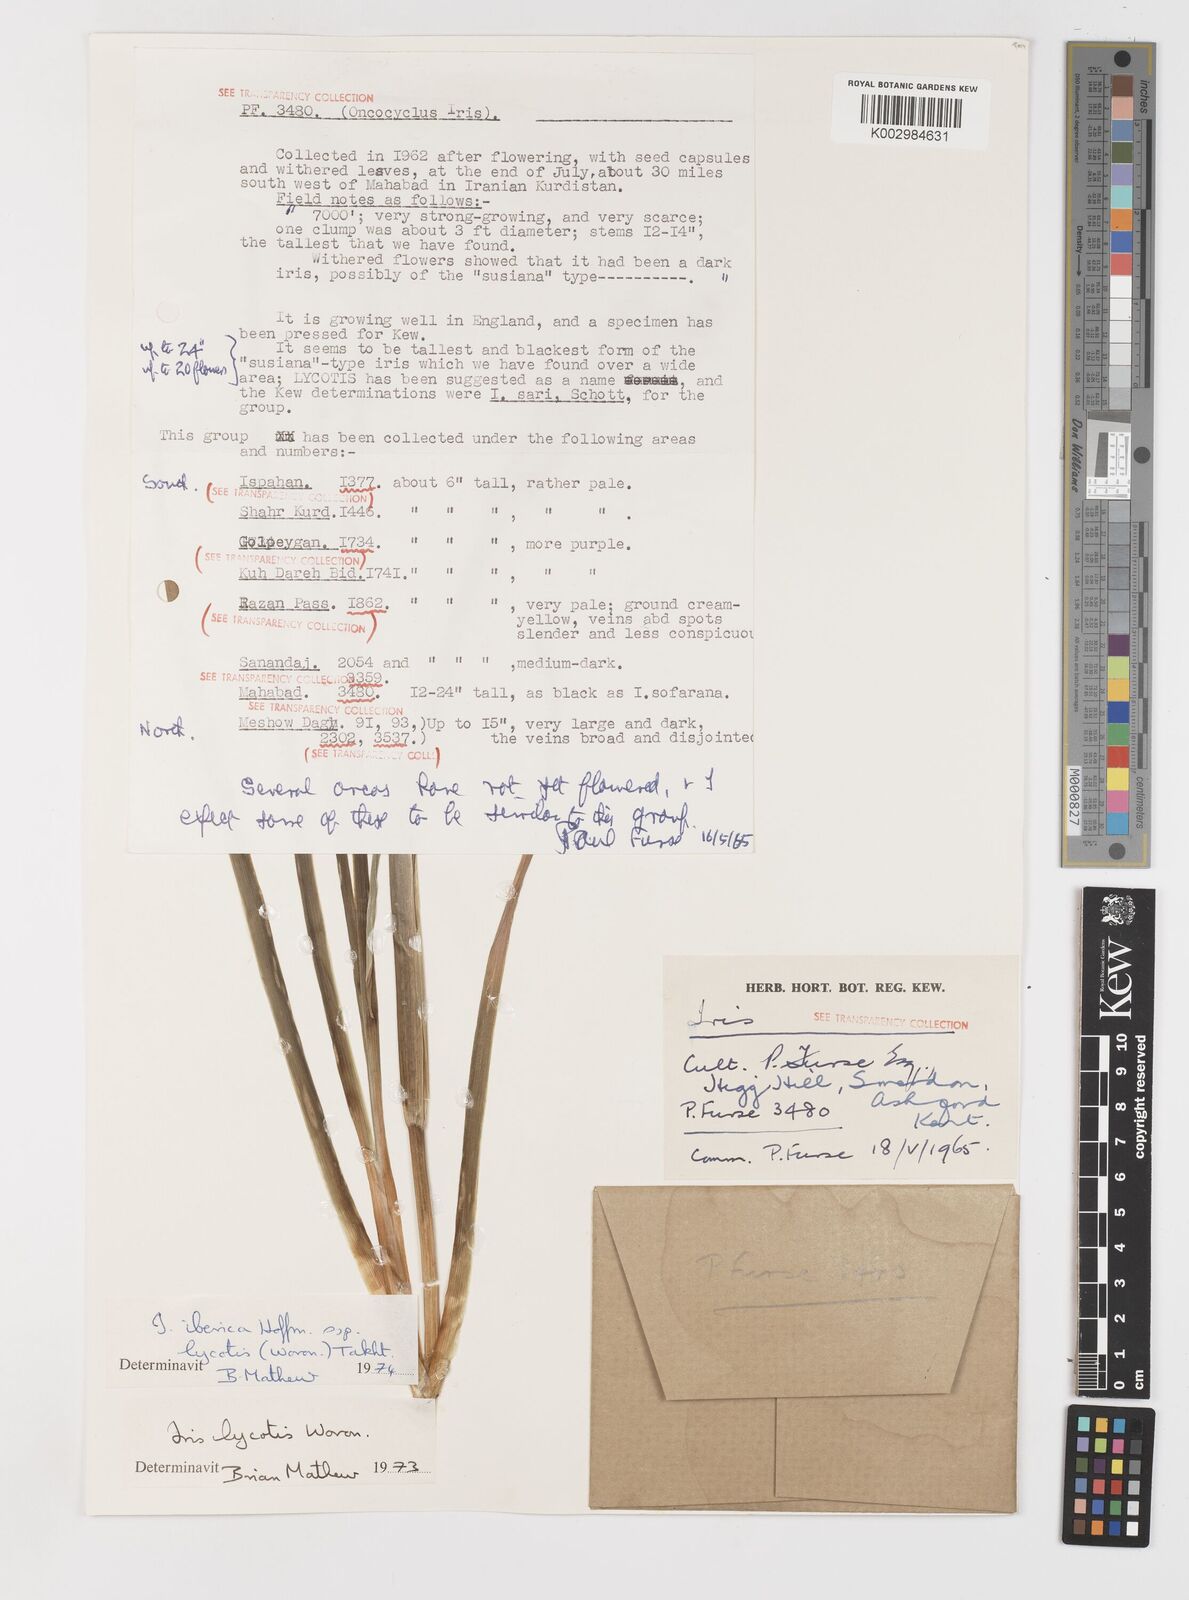 ROYAL BOTANIC GARDENS KEW
K002984631
SEE TRANSPARENCY COLLECTION
PF. 3480. (Oncocyclus Iris).
Collected in I962 after flowering, with seed capsules
and withered leaves, at the end of July, about 30 miles
south west of Mahabad in Iranian Kurdistan.
Field notes as follows:-
" 7000'; very strong-growing, and very scarce;
one clump was about 3 ft diameter; stems I2-I4",
the tallest that we have found.
Withered flowers showed that it had been a dark
iris, possibly of the "susiana" type----------. "
It is growing well in England, and a specimen has
been pressed for Kew.
up to 24"
up to 20 flowers
It seems to be tallest and blackest form of the
"susiana"-type iris which we have found over a wide
area; LYCOTIS has been suggested as a name, and
the Kew determinations were I. sari, Schott, for the
group.
This group has been collected under the following areas
and numbers:-
South.
Ispahan. I377. about 6" tall, rather pale.
(SEE TRANSPARENCY COLLECTION)
Shahr Kurd. I446. " " " , " " .
Golpeygan. I734. " " " , more purple.
(SEE TRANSPARENCY COLLECTION)
Kuh Dareh Bid. I74I. " " " , " "
Razan Pass. I862. " " " , very pale; ground cream-
(SEE TRANSPARENCY COLLECTION)
yellow, veins abd spots
slender and less conspicuou
Sanandaj. 2054 and " " " ,medium-dark.
SEE TRANSPARENCY COLLECTION 3359.
Mahabad. 3480. I2-24" tall, as black as I.sofarana.
SEE TRANSPARENCY COLLECTION
North.
Meshow Dagh. 9I, 93,)Up to I5", very large and dark,
2302, 3537.) the veins broad and disjointed
(SEE TRANSPARENCY COLLE)
Several areas have not yet flowered, & I
expect some of these to be similar to this group.
Paul Furse 16/5/65
HERB. HORT. BOT. REG. KEW.
Iris
SEE TRANSPARENCY COLLECTION
Cult. P. Furse Esq.,
Hegg Hill, Smarden,
Ashford
P. Furse 3480
Kent.
Comm. P. Furse 18/V/1965.
P. Furse
I. iberica Hoffm. ssp.
lycotis (Woron.) Takht.
Determinavit B. Mathew 1974
Iris lycotis Woron.
Determinavit Brian Mathew 1973
inches
centimeters
Density
Don Williams
M000827
Kew
Royal Botanic Gardens
copyright reserved
0 1 2 3 4 5 6 7 8 9 10
cm